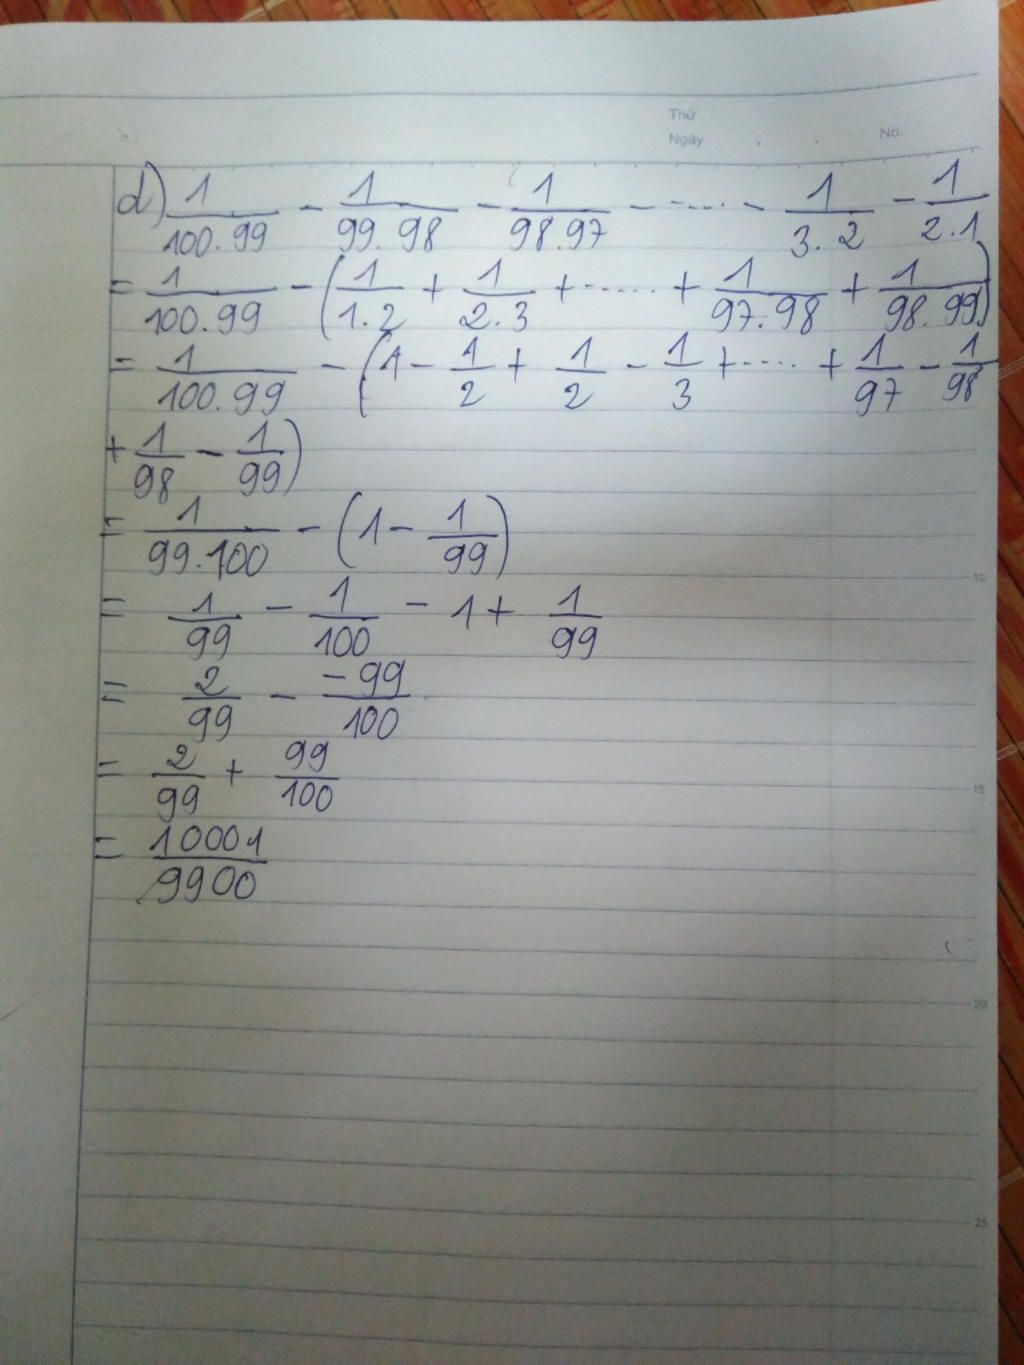 Thứ
Ngày No.
d) 1/100.99 - 1/99.98 - 1/98.97 - ..... - 1/3.2 - 1/2.1
= 1/100.99 - (1/1.2 + 1/2.3 + ..... + 1/97.98 + 1/98.99)
= 1/100.99 - (1 - 1/2 + 1/2 - 1/3 + ..... + 1/97 - 1/98
+ 1/98 - 1/99)
= 1/99.100 - (1 - 1/99)
= 1/99 - 1/100 - 1 + 1/99
= 2/99 - -99/100
= 2/99 + 99/100
= 10001/9900
10
15
20
25